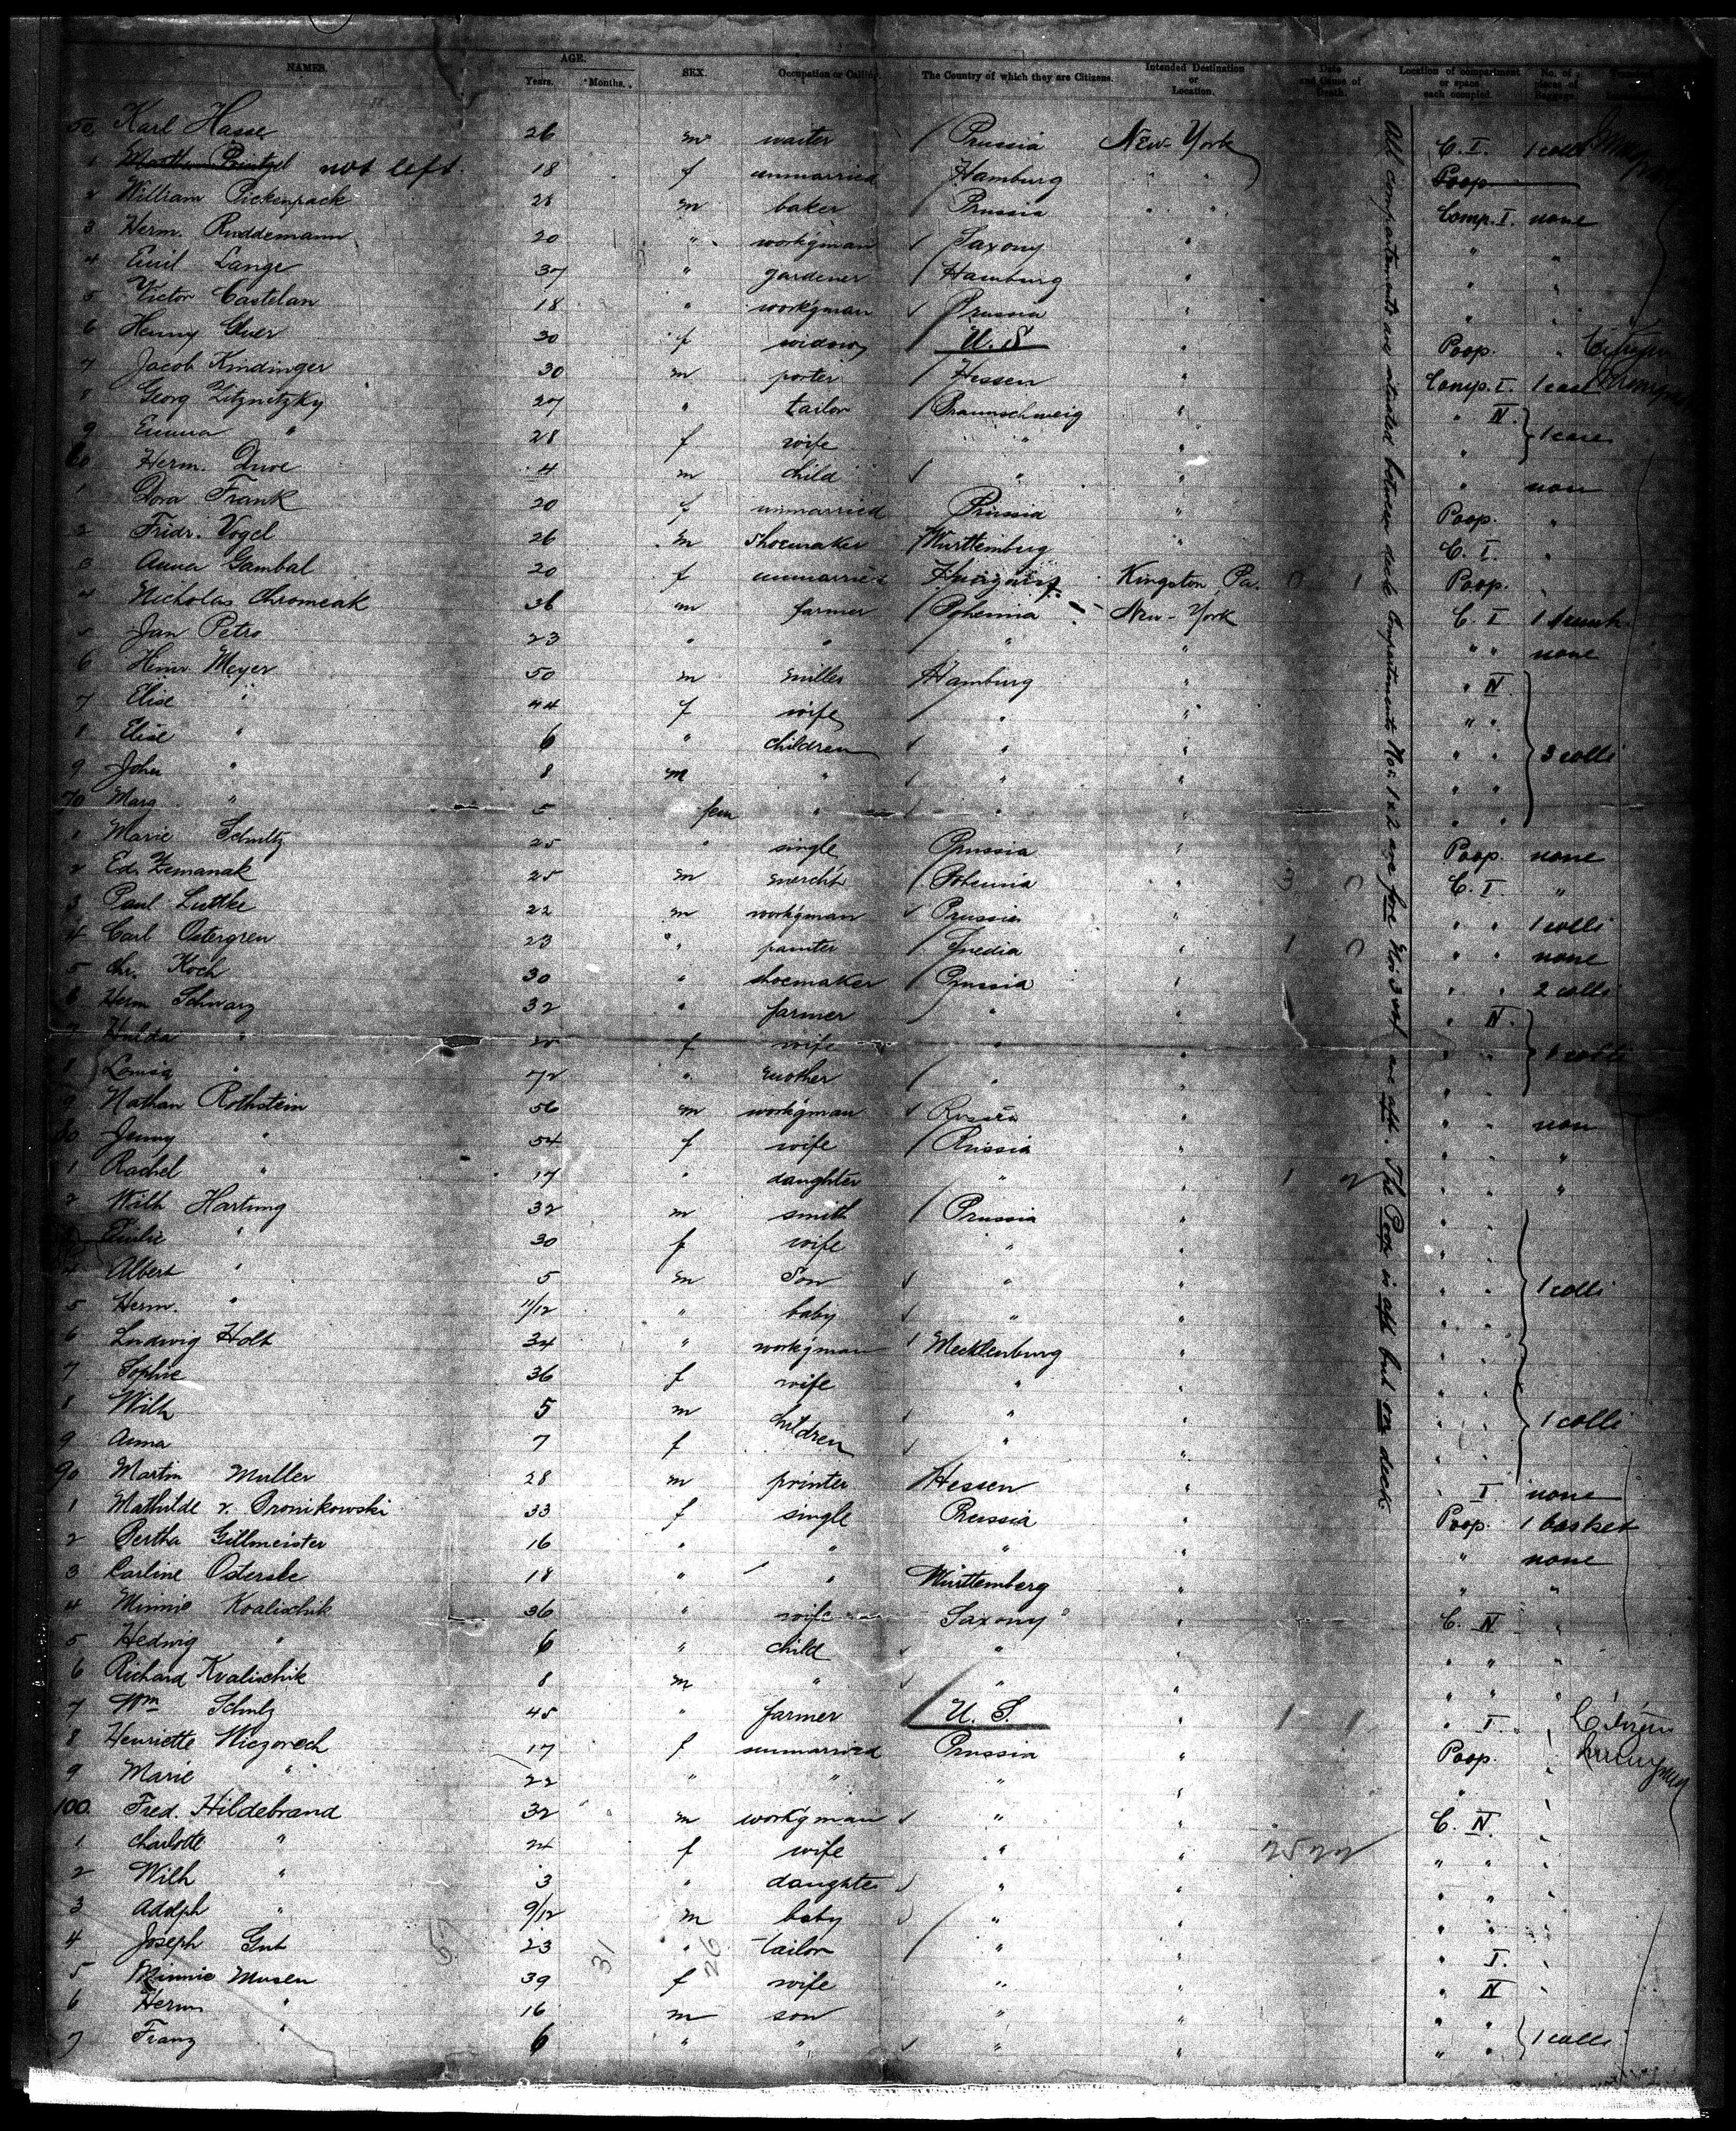 NAMES. AGE. Years. Months. SEX. Occupation or Calling. The Country of which they are Citizens. Intended Destination or Location. Date and Cause of Death. Location of compartment or space each occupied. No. of pieces of Baggage.
50. Karl Hasse 26 m waiter Prussia New-York C. I. 1 colli
1 not left. 18 f unmarried Hamburg " " Poop
2 William Pickenpack 28 m baker Prussia " " Comp. I. none
3 Herm. Ruddemann 20 " workgman Saxony " " "
4 Emil Lange 37 " gardener Hamburg " " "
5 Victor Castelan 18 " workgman Prussia " " "
6 Henny Gluer 30 f widow U. S " Poop. " Citizen
7 Jacob Kindinger 30 m porter Hessen " Comp. I. 1 coll
8 Georg Zitznitzky 27 " tailor Braunschweig " " IV. 1 case
9 Emma " 28 f wife " " "
60 Herm. Duve 4 m child " " " non
1 Dora Frank 20 f unmarried Prussia " Poop. "
2 Fridr. Vogel 26 m shoemaker Württemberg " C. I. "
3 Anna Gambal 20 f unmarried Hungary Kingston, Pa. 0 1 Poop. "
4 Nicholas Chromcak 36 m farmer Bohemia New-York C. I 1 trunk
5 Jan Petro 23 " " " " " " none
6 Heinr. Meyer 50 m miller Hamburg " " IV.
7 Elise " 44 f wife " " " "
8 Elise " 6 " children " " " " 3 colli
9 John " 8 m " " " " "
70 Marg " 5 fem " " " " "
1 Marie Schultz 25 " single Prussia " Poop. none
2 Ed. Zemanak 25 m mercht Bohemia " C. I. "
3 Paul Luttke 22 m workgman Prussia " " " 1 colli
4 Carl Ostergren 23 " painter " 1 0 " " none
5 Chr. Koch 30 " shoemaker Prussia " " " 2 colli
6 Herm Schwarz 32 " farmer " " " IV.
7 Hulda " 20 f wife " " " " 1 colli
8 Louisa " 72 " mother " " "
9 Nathan Rothstein 56 m workgman Russia " " " non
80 Jenny " 54 f wife Russia " " " "
1 Rachel " 17 " daughter " " 1 2 " " "
2 Wilh Hartung 32 m smith Prussia " " "
3 Emilie " 30 f wife " " " "
4 Albert " 5 m Son " " " " 1 colli
5 Herm. " 11/12 " baby " " " "
6 Ludwig Holt 34 " workgman Mecklenburg " " "
7 Sophie 36 f wife " " " "
8 Wilh 5 m children " " " " 1 colli
9 Anna 7 f " " " "
90 Martin Muller 28 m printer Hessen " " I none
1 Mathilde v. Bronikowski 33 f single Prussia " Poop. 1 basket
2 Bertha Gillmeister 16 " " " " " none
3 Carline 18 " " Württemberg " " "
4 Minnie Kvalischik 36 " wife Saxony " C. IV "
5 Hedwig " 6 " child " " " " "
6 Richard Kvalischik 8 m " " " " " "
7 Wm Schulz 45 " farmer U. S. " 1 1 " I. " Citizen
8 Henriette 17 f unmarried Prussia " Poop. "
9 Marie " 22 " " " " " "
100. Fred. Hildebrand 32 m workgman " " C. IV. "
1 Charlotte " 24 f wife " " 25 22 " " "
2 Wilh " 3 " daughter " " " " "
3 Adolph " 9/12 m baby " " " " "
4 Joseph Gut 23 " tailor " " " I. "
5 Minnie Musen 39 f wife " " " IV
6 Herm " 16 m son " " " "
7 Franz " 6 " " " " " " 1 colli
57 31 26
All compartments are situated between deck Compartments Nos. 1 & 2 are fore Nos 3 and are aft. The Poop is aft but on deck.